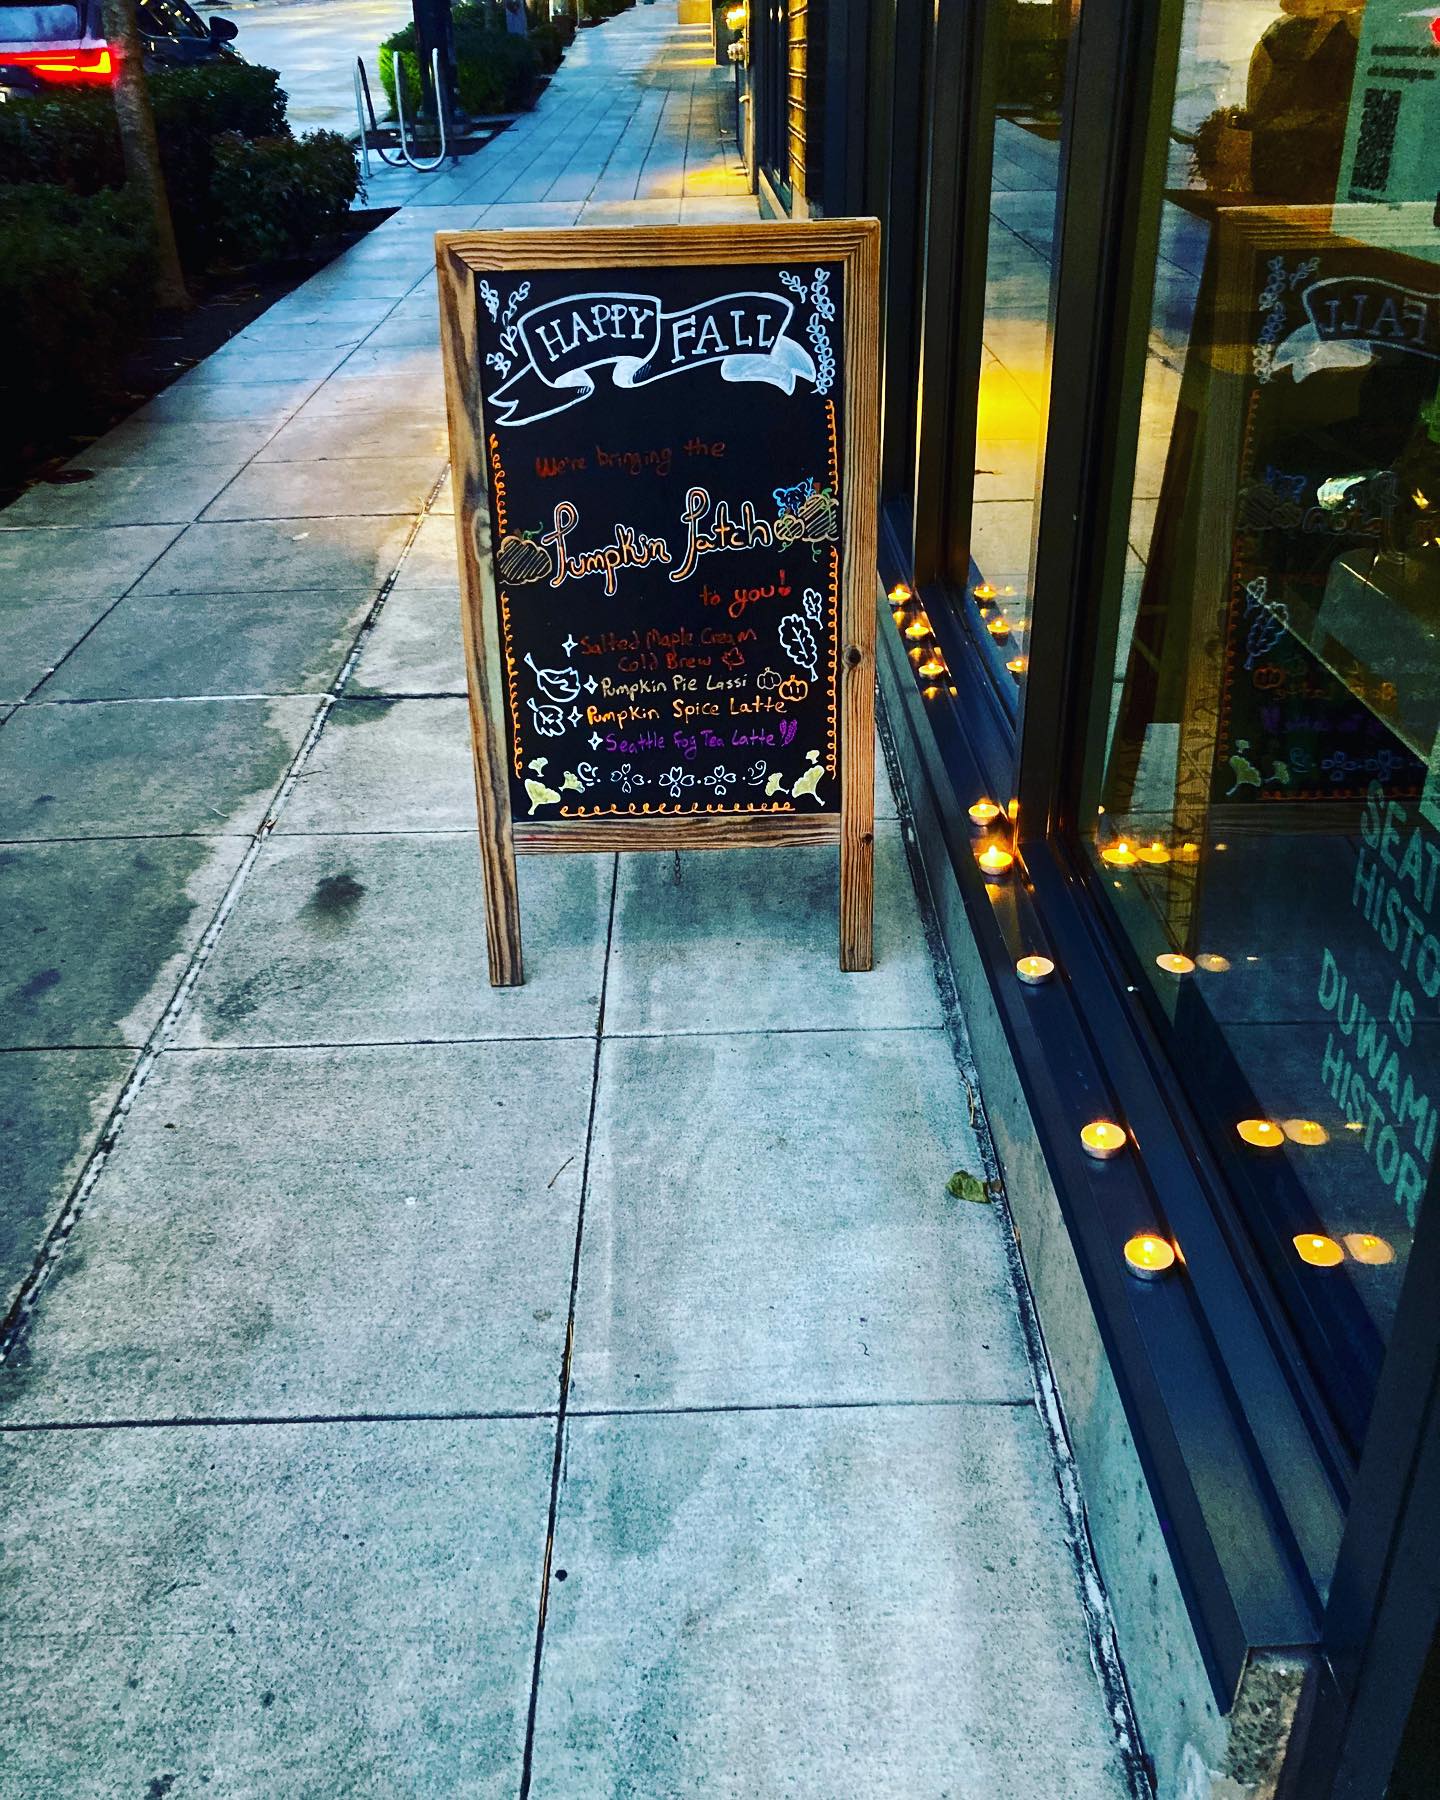 HAPPY FALL
We're bringing the
Pumpkin Patch
to you!
Salted Maple Cream
Cold Brew
Pumpkin Pie Lassi
Pumpkin Spice Latte
Seattle Fog Tea Latte
SEAT
HISTO
IS
DUWAMI
HISTOR
FALL